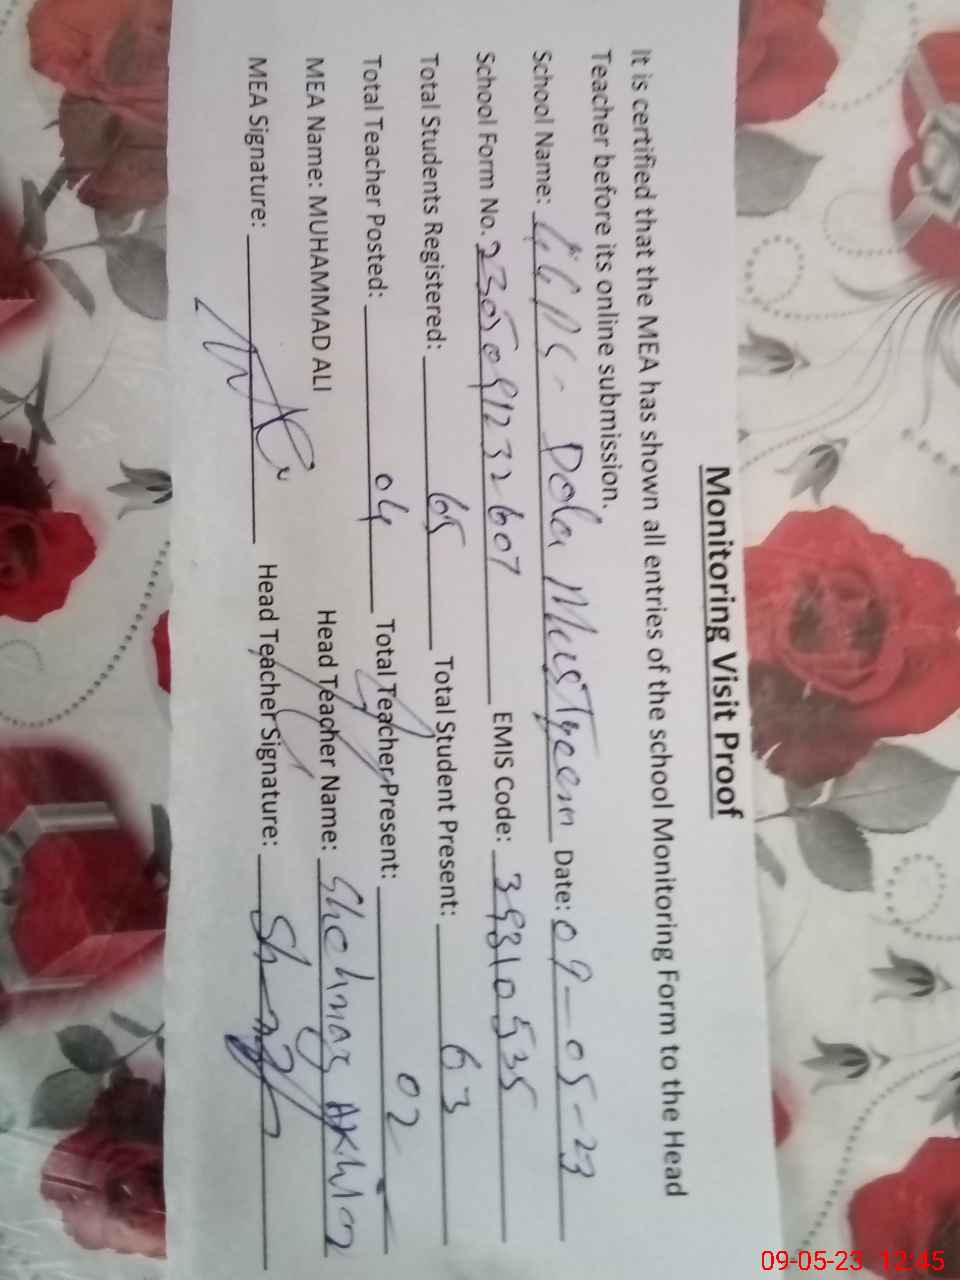 Monitoring Visit Proof
It is certified that the MEA has shown all entries of the school Monitoring Form to the Head
Teacher before its online submission.
School Name: GGPS - Dola Mustqeem Date: 09-05-23
School Form No. 2305091232607 EMIS Code: 39310535
Total Students Registered: 65 Total Student Present: 63
Total Teacher Posted: 04 Total Teacher Present: 02
MEA Name: MUHAMMAD ALI Head Teacher Name: Shehnaz Akhtar
MEA Signature: Head Teacher Signature:
09-05-23 12:45